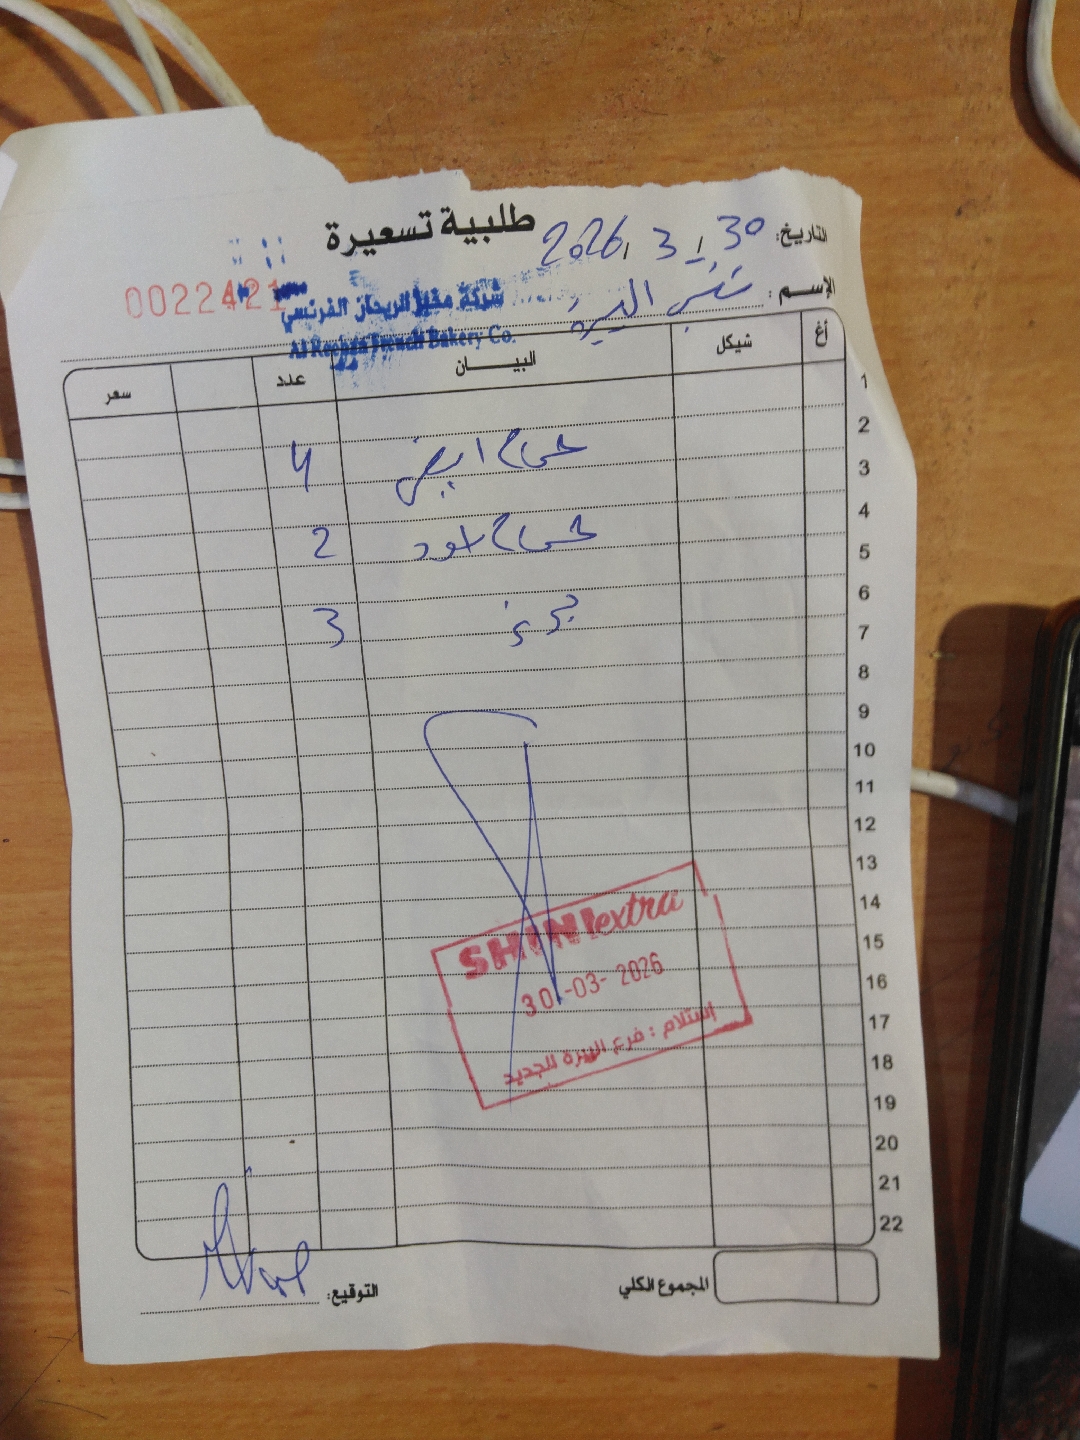 طلبية تسعيرة
التاريخ: 30 / 3 / 2026
0022421
الإسم: شني البيرة
شركة مخبز الريحان الفرنسي
Al Reehan French Bakery Co.
أغ شيكل البيـــان عدد سعر
1
2
حمام ابيض 4
3
4
حمام اسود 2
5
6
برغر 3
7
8
9
10
11
12
13
14
15
16
17
18
19
20
21
22
SHINI extra
30-03-2026
إستلام : فرع البيرة الجديد
المجموع الكلي
التوقيع: